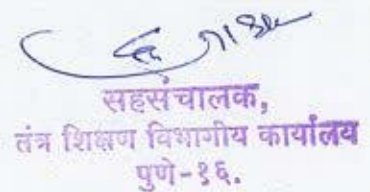 सहसंचालक,
तंत्र शिक्षण विभागीय कार्यालय
पुणे-१६.